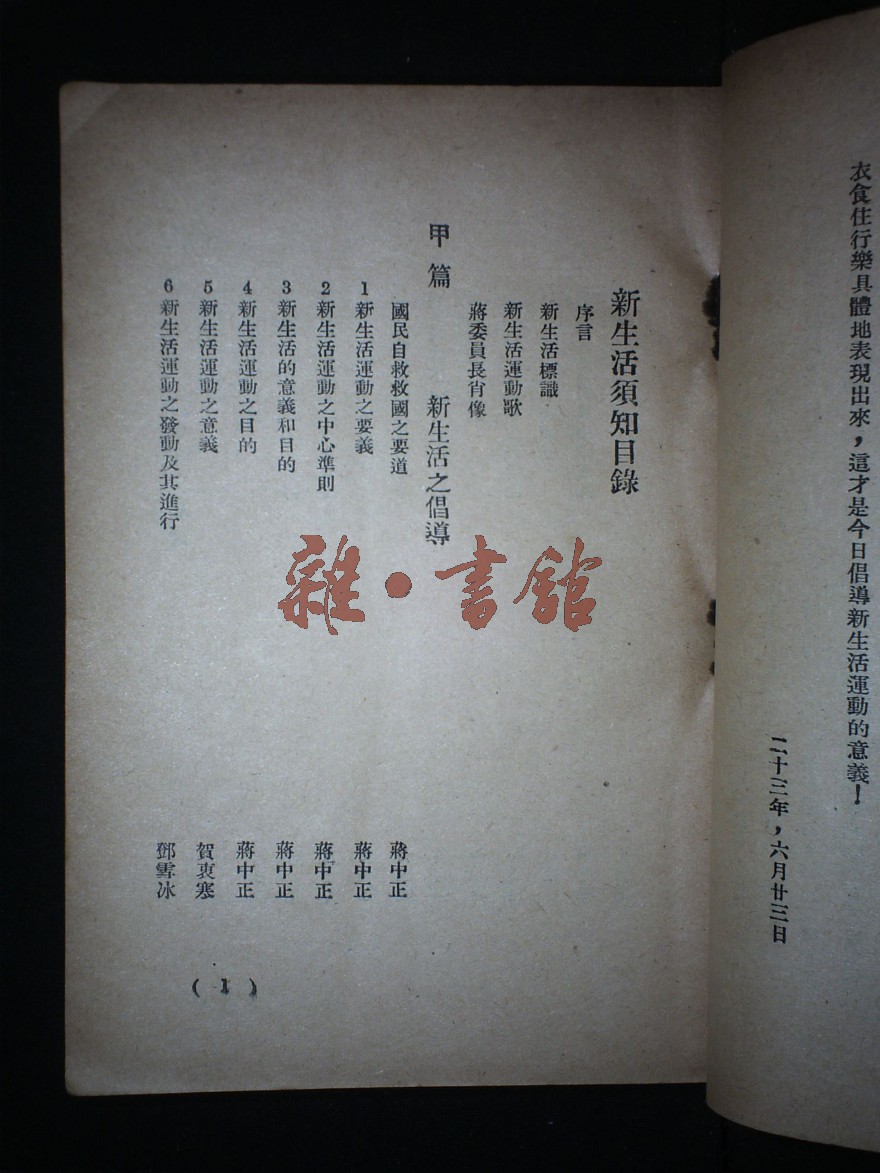 衣食住行樂具體地表現出來，這才是今日倡導新生活運動的意義！
二十三年，六月廿三日
新生活須知目錄
序言
新生活標識
新生活運動歌
蔣委員長肖像
甲篇 新生活之倡導
國民自救救國之要道 蔣中正
1 新生活運動之要義 蔣中正
2 新生活運動之中心準則 蔣中正
3 新生活的意義和目的 蔣中正
4 新生活運動之目的 蔣中正
5 新生活運動之意義 賀衷寒
6 新生活運動之發動及其進行 鄧雪冰
(1)
雜·書館